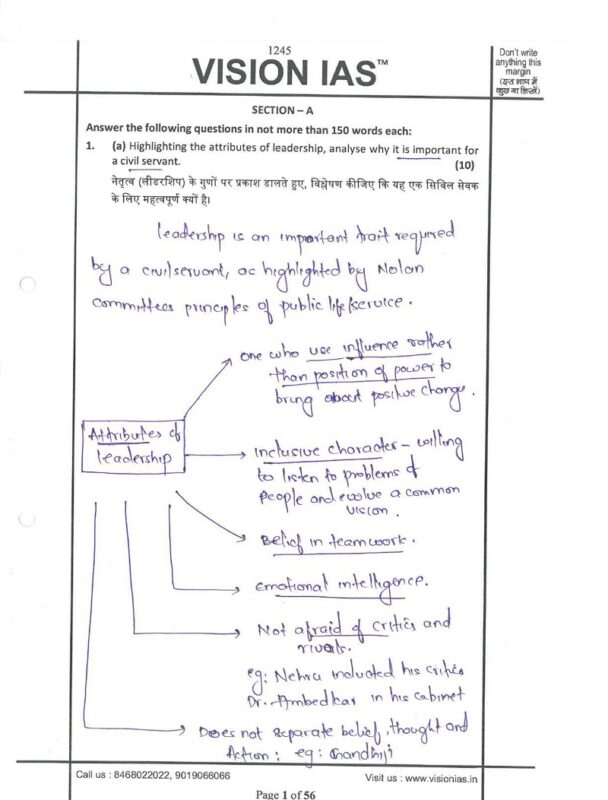 1245
VISION IAS™
Don't write
anything this
margin
(इस भाग में
कुछ ना लिखें)
SECTION – A
Answer the following questions in not more than 150 words each:
1. (a) Highlighting the attributes of leadership, analyse why it is important for
a civil servant. (10)
नेतृत्व (लीडरशिप) के गुणों पर प्रकाश डालते हुए, विश्लेषण कीजिए कि यह एक सिविल सेवक
के लिए महत्वपूर्ण क्यों है।
leadership is an important trait required
by a civil servant, as highlighted by Nolan
committees principles of public life/service.
one who use influence rather
than position of power to
bring about positive change.
Attributes of
leadership
inclusive character – willing
to listen to problems of
people and evolve a common
vision.
Belief in teamwork.
emotional intelligence.
Not afraid of critics and
rivals.
eg: Nehru included his critics
Dr. Ambedkar in his cabinet
Does not separate belief, thought and
Action: eg: Gandhiji
Call us : 8468022022, 9019066066
Visit us : www.visionias.in
Page 1 of 56